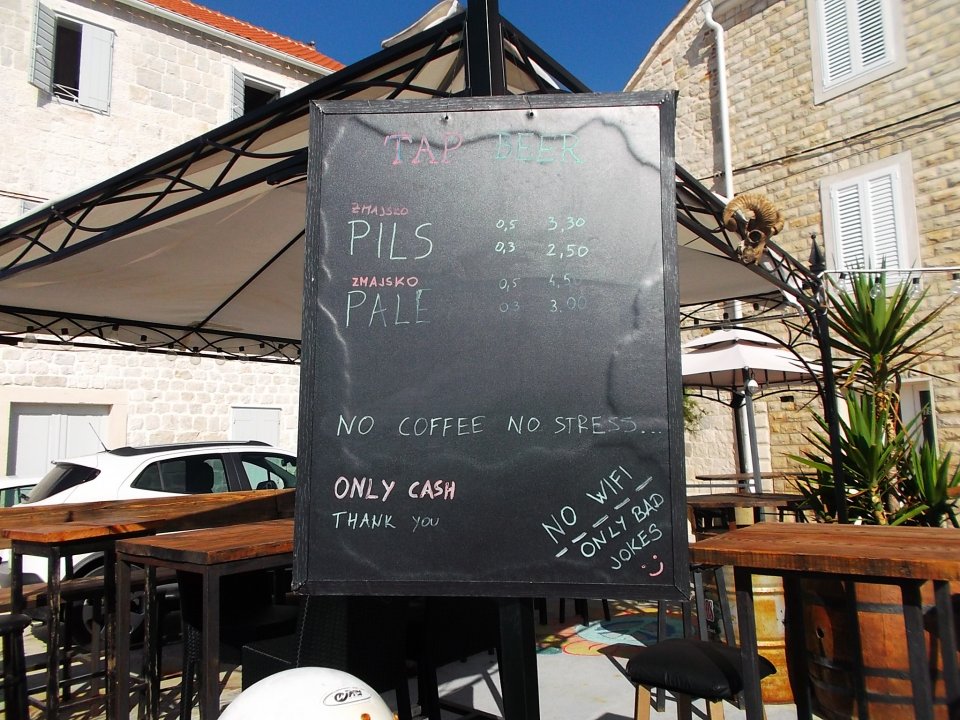 TAP BEER
ZMAJSKO
PILS 0,5 3,30
0,3 2,50
ZMAJSKO
PALE 0,5 4,5
0,3 3,00
NO COFFEE NO STRESS...
ONLY CASH
THANK YOU
NO WIFI
ONLY BAD
JOKES